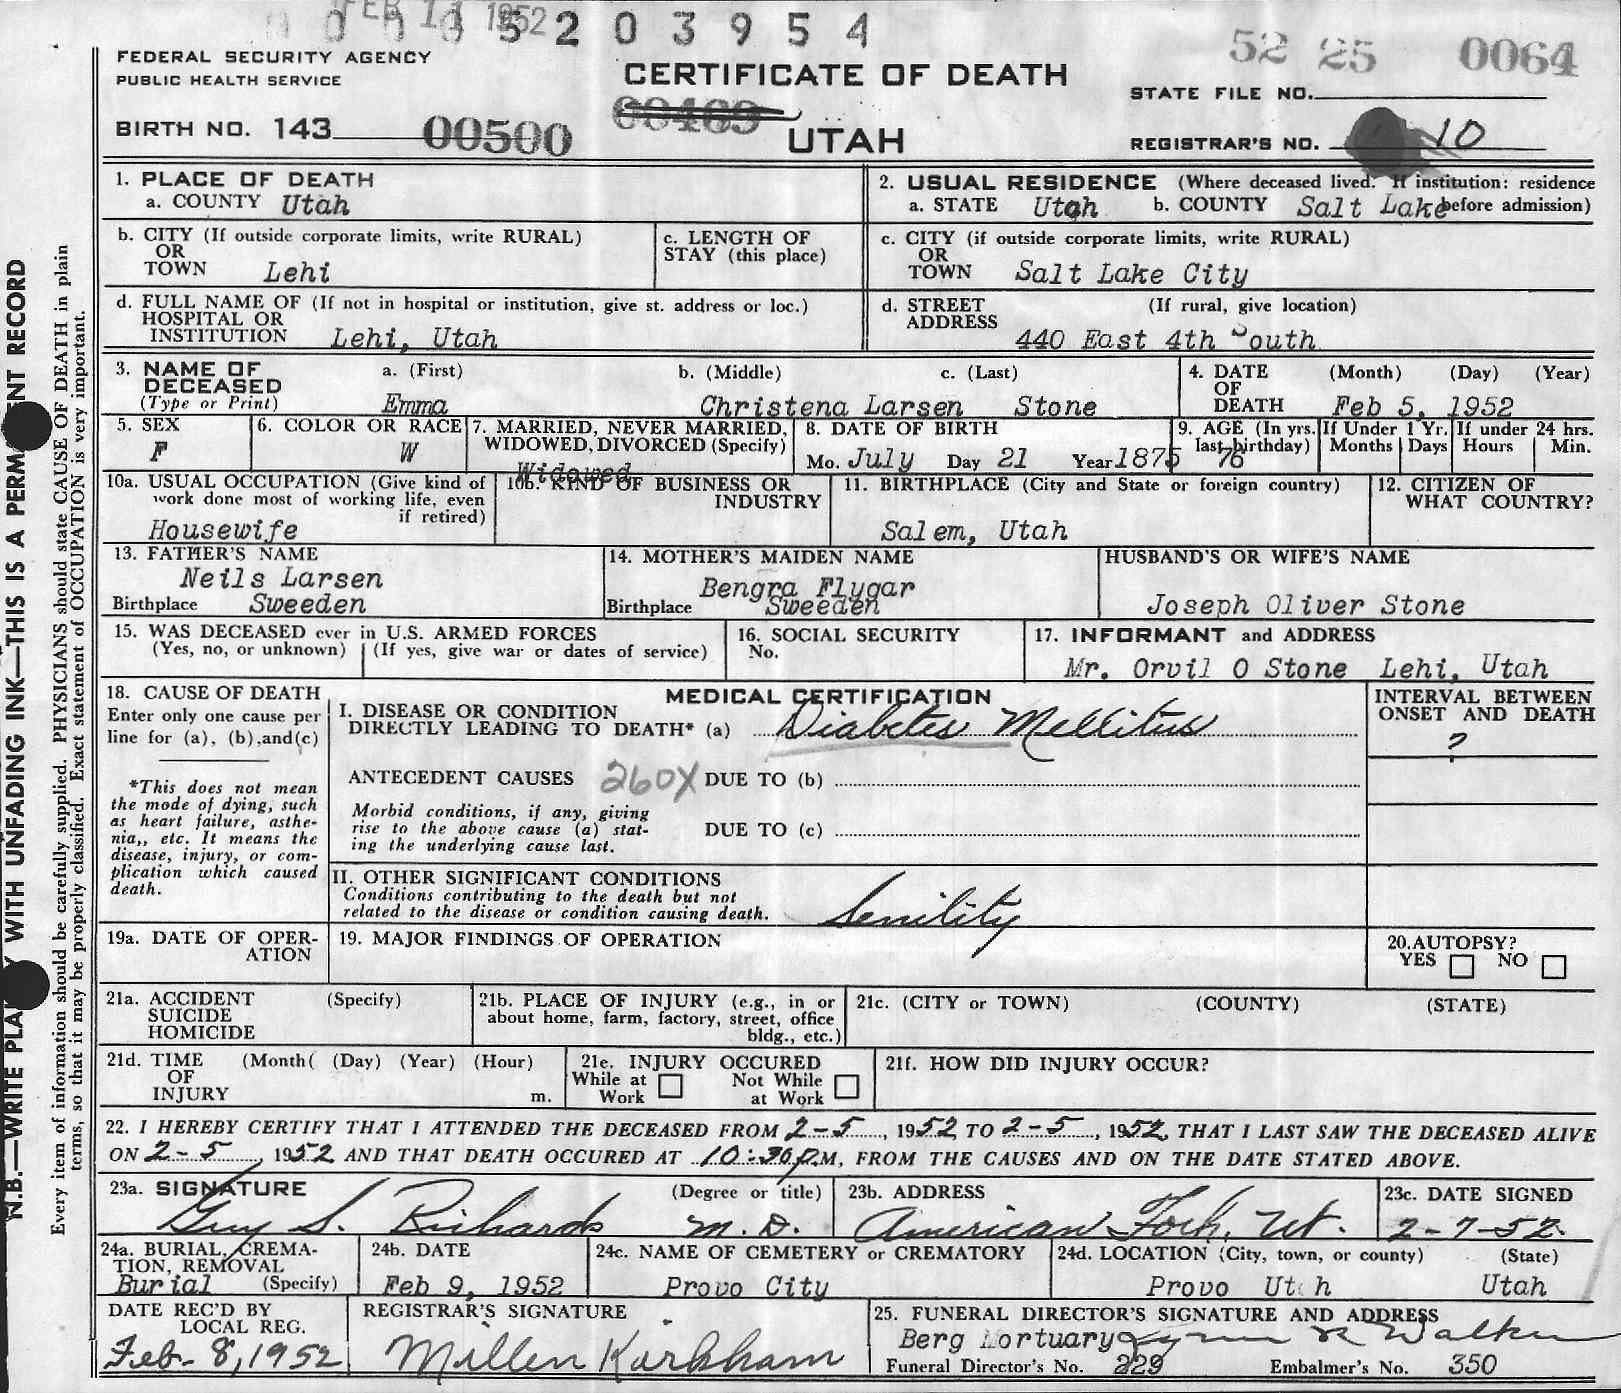 FEB 11 1952
0 0 0 0 5 2 0 3 9 5 4
52 25 0064
FEDERAL SECURITY AGENCY
PUBLIC HEALTH SERVICE
CERTIFICATE OF DEATH
STATE FILE NO.
BIRTH NO. 143 00500
00469
UTAH
REGISTRAR'S NO. 10
1. PLACE OF DEATH
a. COUNTY Utah
2. USUAL RESIDENCE (Where deceased lived. If institution: residence
a. STATE Utah b. COUNTY Salt Lake before admission)
b. CITY (If outside corporate limits, write RURAL)
OR
TOWN Lehi
c. LENGTH OF
STAY (this place)
c. CITY (if outside corporate limits, write RURAL)
OR
TOWN Salt Lake City
d. FULL NAME OF (If not in hospital or institution, give st. address or loc.)
HOSPITAL OR
INSTITUTION Lehi, Utah
d. STREET (If rural, give location)
ADDRESS
440 East 4th South
3. NAME OF a. (First) b. (Middle) c. (Last)
DECEASED
(Type or Print) Emma Christena Larsen Stone
4. DATE (Month) (Day) (Year)
OF
DEATH Feb 5, 1952
5. SEX
F
6. COLOR OR RACE
W
7. MARRIED, NEVER MARRIED,
WIDOWED, DIVORCED (Specify)
Widowed
8. DATE OF BIRTH
Mo. July Day 21 Year 1875
9. AGE (In yrs.
last birthday)
76
If Under 1 Yr.
Months Days
If under 24 hrs.
Hours Min.
10a. USUAL OCCUPATION (Give kind of
work done most of working life, even
if retired)
Housewife
10b. KIND OF BUSINESS OR
INDUSTRY
11. BIRTHPLACE (City and State or foreign country)
Salem, Utah
12. CITIZEN OF
WHAT COUNTRY?
13. FATHER'S NAME
Neils Larsen
Birthplace Sweeden
14. MOTHER'S MAIDEN NAME
Bengra Flygar
Birthplace Sweeden
HUSBAND'S OR WIFE'S NAME
Joseph Oliver Stone
15. WAS DECEASED ever in U.S. ARMED FORCES
(Yes, no, or unknown) (If yes, give war or dates of service)
16. SOCIAL SECURITY
No.
17. INFORMANT and ADDRESS
Mr. Orvil O Stone Lehi, Utah
18. CAUSE OF DEATH
Enter only one cause per
line for (a), (b),and(c)
*This does not mean
the mode of dying, such
as heart failure, asthe-
nia,, etc. It means the
disease, injury, or com-
plication which caused
death.
MEDICAL CERTIFICATION
I. DISEASE OR CONDITION
DIRECTLY LEADING TO DEATH* (a) Diabetes Mellitus
ANTECEDENT CAUSES 260X DUE TO (b)
Morbid conditions, if any, giving
rise to the above cause (a) stat-
ing the underlying cause last.
DUE TO (c)
II. OTHER SIGNIFICANT CONDITIONS
Conditions contributing to the death but not
related to the disease or condition causing death.
Senility
INTERVAL BETWEEN
ONSET AND DEATH
?
19a. DATE OF OPER-
ATION
19. MAJOR FINDINGS OF OPERATION
20.AUTOPSY?
YES NO
21a. ACCIDENT (Specify)
SUICIDE
HOMICIDE
21b. PLACE OF INJURY (e.g., in or
about home, farm, factory, street, office
bldg., etc.)
21c. (CITY or TOWN) (COUNTY) (STATE)
21d. TIME (Month( (Day) (Year) (Hour)
OF
INJURY m.
21e. INJURY OCCURED
While at Not While
Work at Work
21f. HOW DID INJURY OCCUR?
22. I HEREBY CERTIFY THAT I ATTENDED THE DECEASED FROM 2-5, 1952 TO 2-5, 1952, THAT I LAST SAW THE DECEASED ALIVE
ON 2-5, 1952 AND THAT DEATH OCCURED AT 10:30 P.M, FROM THE CAUSES AND ON THE DATE STATED ABOVE.
23a. SIGNATURE (Degree or title)
Guy S. Richards M.D.
23b. ADDRESS
American Fork, Ut.
23c. DATE SIGNED
2-7-52
24a. BURIAL, CREMA-
TION, REMOVAL
Burial (Specify)
24b. DATE
Feb 9, 1952
24c. NAME OF CEMETERY or CREMATORY
Provo City
24d. LOCATION (City, town, or county) (State)
Provo Ut h Utah
DATE REC'D BY
LOCAL REG.
Feb. 8, 1952
REGISTRAR'S SIGNATURE
Millen Kirkham
25. FUNERAL DIRECTOR'S SIGNATURE AND ADDRESS
Berg Mortuary Lynn R Walker
Funeral Director's No. 229 Embalmer's No. 350
N.B.—WRITE PLA Y WITH UNFADING INK—THIS IS A PERM ENT RECORD
Every item of information should be carefully supplied. PHYSICIANS should state CAUSE OF DEATH in plain
terms, so that it may be properly classified. Exact statement of OCCUPATION is very important.